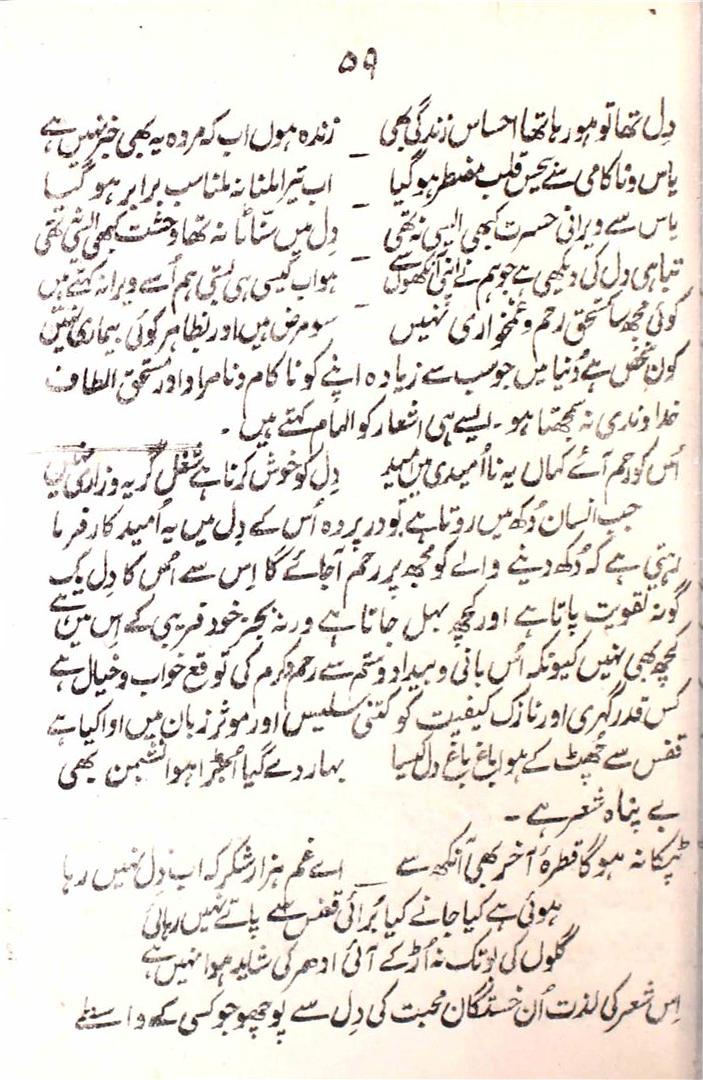 ۵۹
دل تھا تو ہو رہا تھا احساس زندگی بھی زندہ ہوں اب کہ مردہ یہ بھی خبر نہیں ہے
یاس و ناکامی سے بحس قلب مضطر ہو گیا اب تیرا ملنا نہ ملنا سب برابر ہو گیا
یاس سے ویرانی حسرت کبھی ایسی نہ تھی دل میں سناٹا نہ تھا وحشت کبھی ایسی نہ تھی
تباہی دل کی دیکھی ہے جو ہم نے اپنی آنکھوں سے ہو اب کیسی ہی بستی ہم اُسے ویرانہ کہتے ہیں
کوئی مجھ سا مستحق رحم و غمخواری نہیں سو مرض ہیں اور بظاہر کوئی بیماری نہیں
کون شخص ہے دُنیا میں جو سب سے زیادہ اپنے کو ناکام و نامراد اور مستحق الطاف
خداوندی نہ سمجھتا ہو۔ ایسے ہی اشعار کو الہام کہتے ہیں۔
اُس کو رحم آئے کہاں یہ نا اُمیدی میں امید دل کو خوش کرنا ہے شغل گریہ و زاری نہیں
جب انسان دُکھ میں روتا ہے تو در پردہ اُس کے دل میں یہ اُمید کارفرما
رہتی ہے کہ دُکھ دینے والے کو مجھ پر رحم آجائے گا اِس سے اُس کا دل یک
گونہ تقویت پاتا ہے اور کچھ بہل جاتا ہے ورنہ بجز خود فریبی کے اِس میں ہے
کچھ بھی نہیں کیونکہ اُس بانی و بیداد و ستم سے رحم و کرم کی توقع خواب و خیال ہے
کس قدر گہری اور نازک کیفیت کو کتنی سلیس اور موثر زبان میں ادا کیا ہے
قفس سے چھٹ کے ہوا باغ باغ دل کیسا بہار دے گیا اُجڑا ہوا نشیمن بھی
بے پناہ شعر ہے۔
ٹپکا نہ ہوگا قطرۂ آخر بھی آنکھ سے اے غم ہزار شکر کہ اب دل نہیں رہا
ہوئی ہے کیا جانے کیا بُرائی قفس سے پاتے نہیں رہائی
گلوں کی بو تک نہ اُڑ کے آئی ادھر کی شاید ہوا نہیں ہے
اِس شعر کی لذت اُن خستگان محبت کی دِل سے پوچھو جو کسی کے واسطے